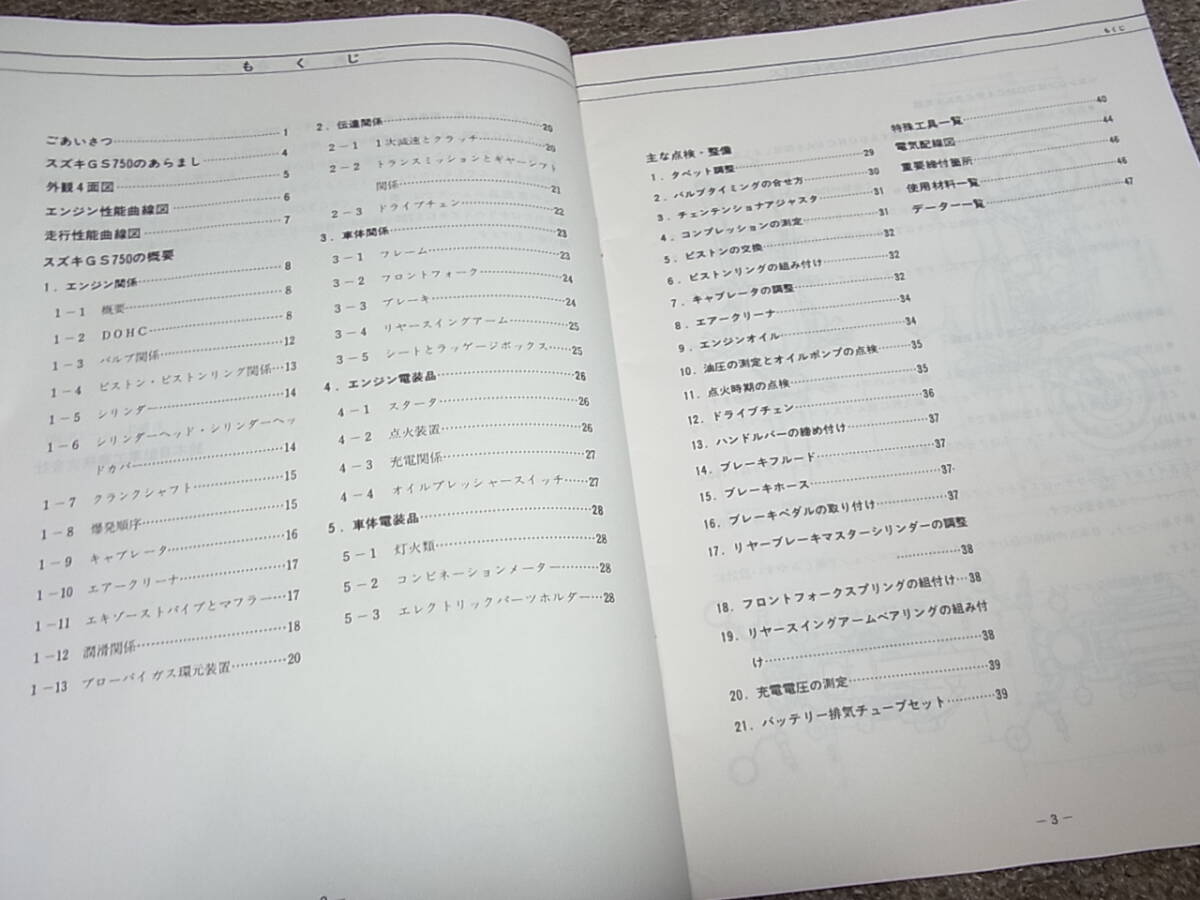 もくじ
ごあいさつ……1
スズキGS750のあらまし……4
外観4面図……5
エンジン性能曲線図……6
走行性能曲線図……7
スズキGS750の概要
1．エンジン関係……8
1－1 概要……8
1－2 DOHC……8
1－3 バルブ関係……12
1－4 ピストン・ピストンリング関係…13
1－5 シリンダー……14
1－6 シリンダーヘッド・シリンダーヘッ
ドカバー……14
1－7 クランクシャフト……15
1－8 爆発順序……15
1－9 キャブレータ……16
1－10 エアークリーナ……17
1－11 エキゾーストパイプとマフラー…17
1－12 潤滑関係……18
1－13 ブローバイガス環元装置……20
2．伝達関係……20
2－1 1次減速とクラッチ……20
2－2 トランスミッションとギヤーシフト
関係……21
2－3 ドライブチェン……22
3．車体関係……23
3－1 フレーム……23
3－2 フロントフォーク……24
3－3 ブレーキ……24
3－4 リヤースイングアーム……25
3－5 シートとラッゲージボックス……25
4．エンジン電装品……26
4－1 スタータ……26
4－2 点火装置……26
4－3 充電関係……27
4－4 オイルプレッシャースイッチ……27
5．車体電装品……28
5－1 灯火類……28
5－2 コンビネーションメーター……28
5－3 エレクトリックパーツホルダー…28
もくじ
主な点検・整備
1．タペット調整……29
2．バルブタイミングの合せ方……30
3．チェンテンショナアジャスタ……31
4．コンプレッションの測定……31
5．ピストンの交換……32
6．ピストンリングの組み付け……32
7．キャブレータの調整……32
8．エアークリーナ……34
9．エンジンオイル……34
10．油圧の測定とオイルポンプの点検……35
11．点火時期の点検……35
12．ドライブチェン……36
13．ハンドルバーの締め付け……37
14．ブレーキフルード……37
15．ブレーキホース……37
16．ブレーキペダルの取り付け……37
17．リヤーブレーキマスターシリンダーの調整
……38
18．フロントフォークスプリングの組付け…38
19．リヤースイングアームベアリングの組み付
け……38
20．充電電圧の測定……39
21．バッテリー排気チューブセット……39
特殊工具一覧……40
電気配線図……44
重要締付箇所……46
使用材料一覧……46
データー一覧……47
－3－